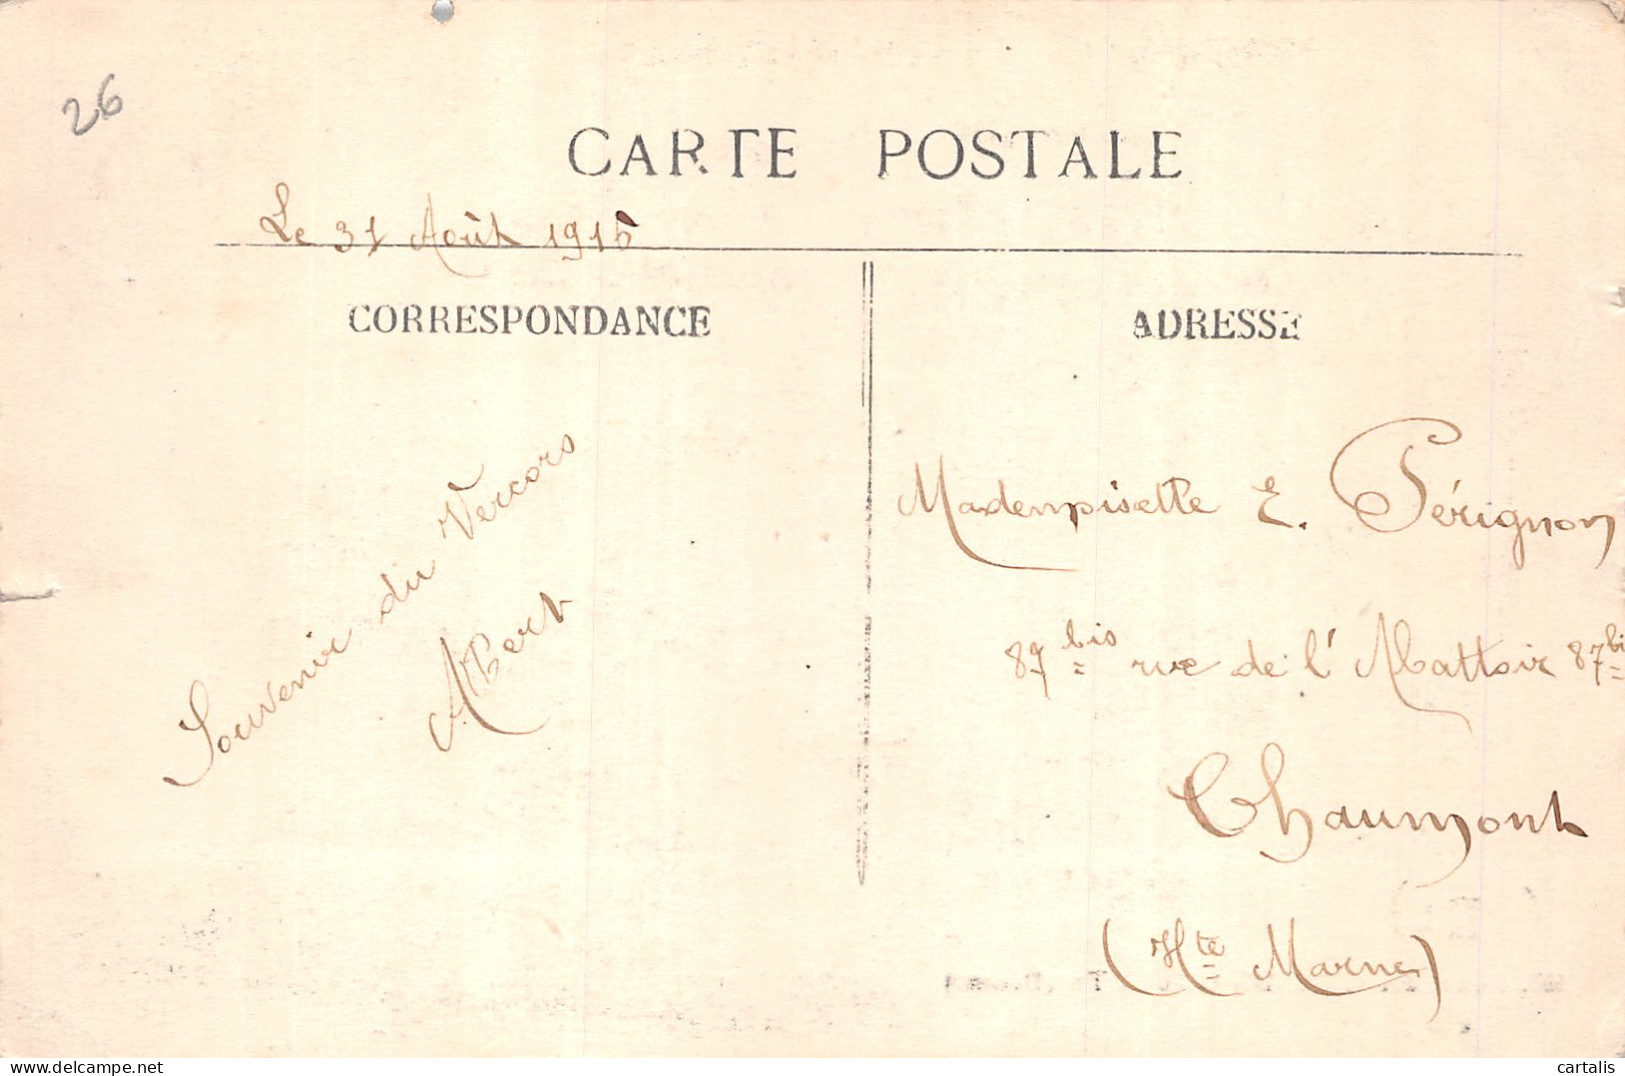 26
CARTE POSTALE
Le 31 Août 1915
CORRESPONDANCE
ADRESSE
Souvenir du Vercors
Albert
Mademoiselle E. Pérignon
87 bis rue de l'Abattoir 87 bi
Chaumont
(Hte Marne)
cartalis